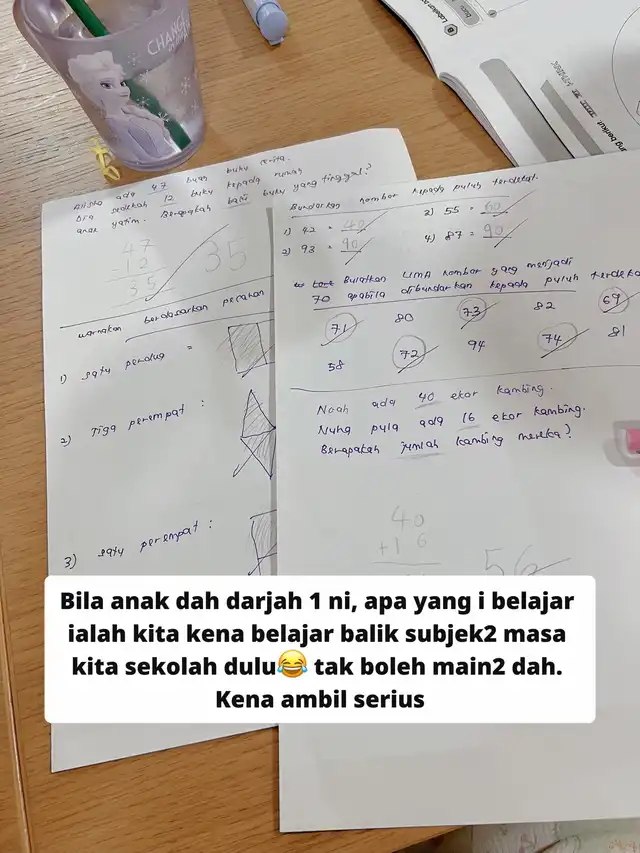 CHANGE
Alisha ada 47 buah buku cerita.
Dia sedekah 12 buku kepada rumah
anak yatim. Berapakah baki buku yang tinggal?
47
- 12
35
35
warnakan berdasarkan pecahan
1) satu perdua =
2) Tiga perempat :
3) satu perempat :
Bundarkan nombor kepada puluh terdekat.
1) 42 = 40
2) 55 = 60
3) 93 = 90
4) 87 = 90
Bulatkan LIMA nombor yang menjadi
70 apabila dibundarkan kepada puluh
71 80 73 82 69
58 72 94 74 81
Noah ada 40 ekor kambing.
Nuha pula ada 16 ekor kambing.
Berapakah jumlah kambing mereka?
40
+ 16
56
Bila anak dah darjah 1 ni, apa yang i belajar
ialah kita kena belajar balik subjek2 masa
kita sekolah dulu😂 tak boleh main2 dah.
Kena ambil serius